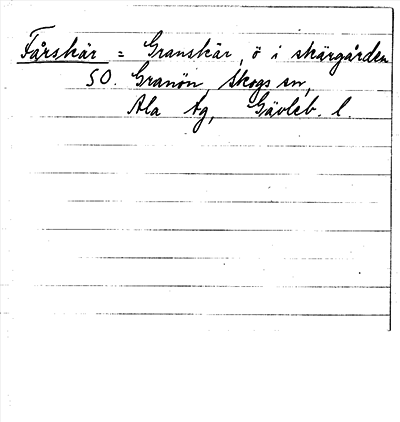 Fårskär = Granskär, ö i skärgården
SO. Granön, Skogs sn,
Ala tg, Gävleb. l.